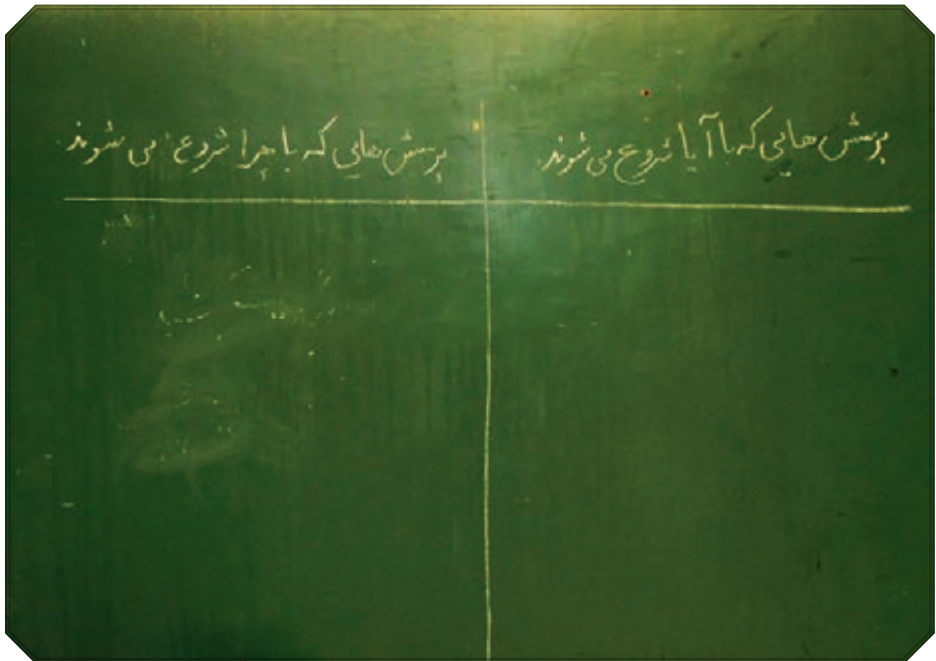 پرسش‌هایی که با آیا شروع می‌شوند.
پرسش‌هایی که با چرا شروع می‌شوند.